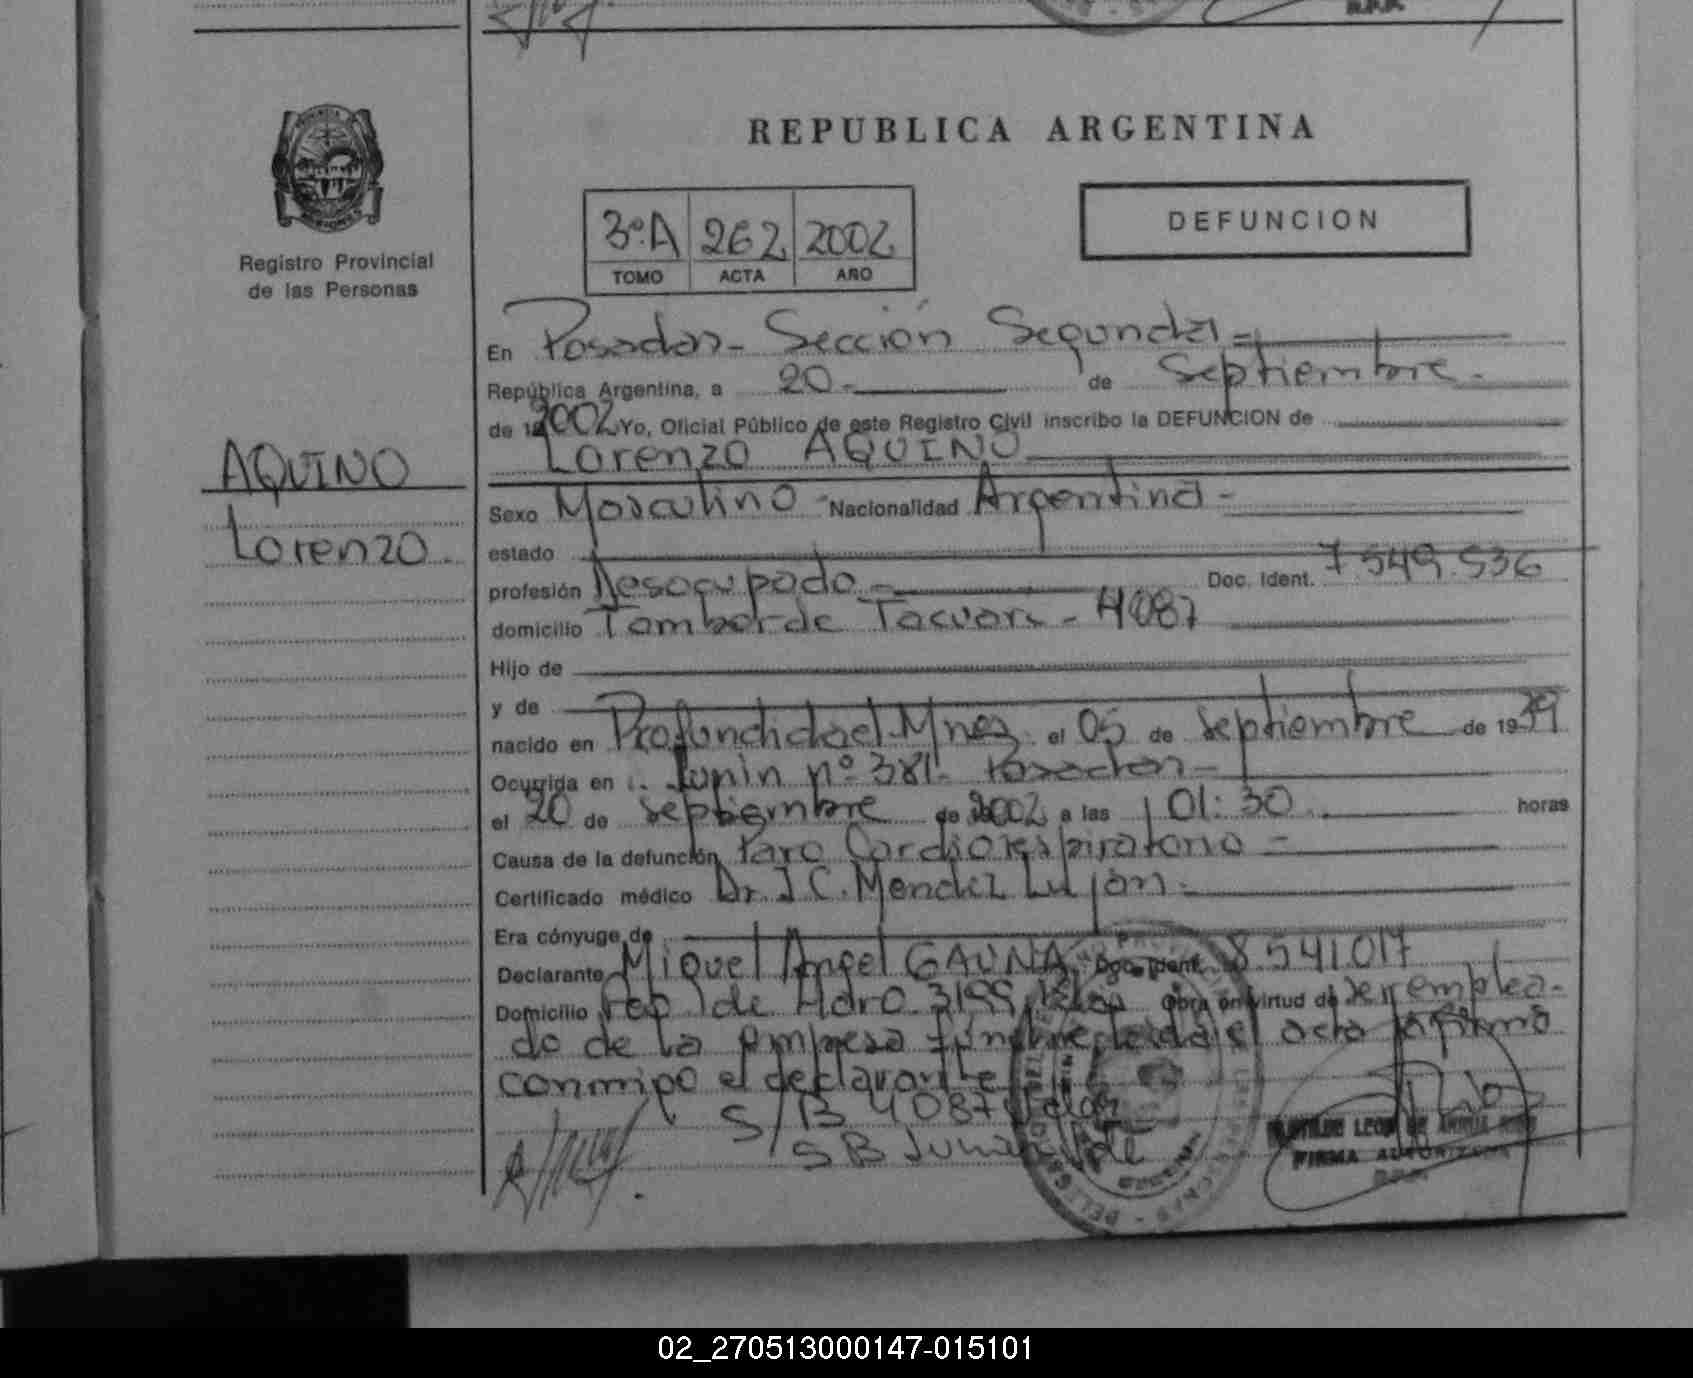 REPUBLICA ARGENTINA
3º A 262 2002
TOMO ACTA AÑO
DEFUNCION
Registro Provincial
de las Personas
En Posadas - Sección Segunda =
República Argentina, a 20 - de Septiembre -
de 2002 Yo, Oficial Público de este Registro Civil inscribo la DEFUNCION de
Lorenzo AQUINO
AQUINO
Lorenzo.
Sexo Masculino Nacionalidad Argentina -
estado
profesión Desocupado - Doc. Ident. 7 549 536
domicilio Tambor de Tacuari - 4087
Hijo de
y de
nacido en Profundidad Mnes el 05 de septiembre de 1939
Ocurrida en Junin nº 381 - Posadas -
el 20 de septiembre de 2002 a las 01:30 horas
Causa de la defunción Paro Cardiorespiratorio -
Certificado médico Dr. J C. Mendez Lujan -
Era cónyuge de
Declarante Miguel Angel GAUNA Doc. Ident. 8.541.017
Domicilio Pob. de Adro 3199 Obra en virtud de ser emplea-
do de la empresa fúnebre el acta la firma
conmigo el declarante
S/B 4087
S B Junin
FIRMA AUTORIZADA
02_270513000147-015101